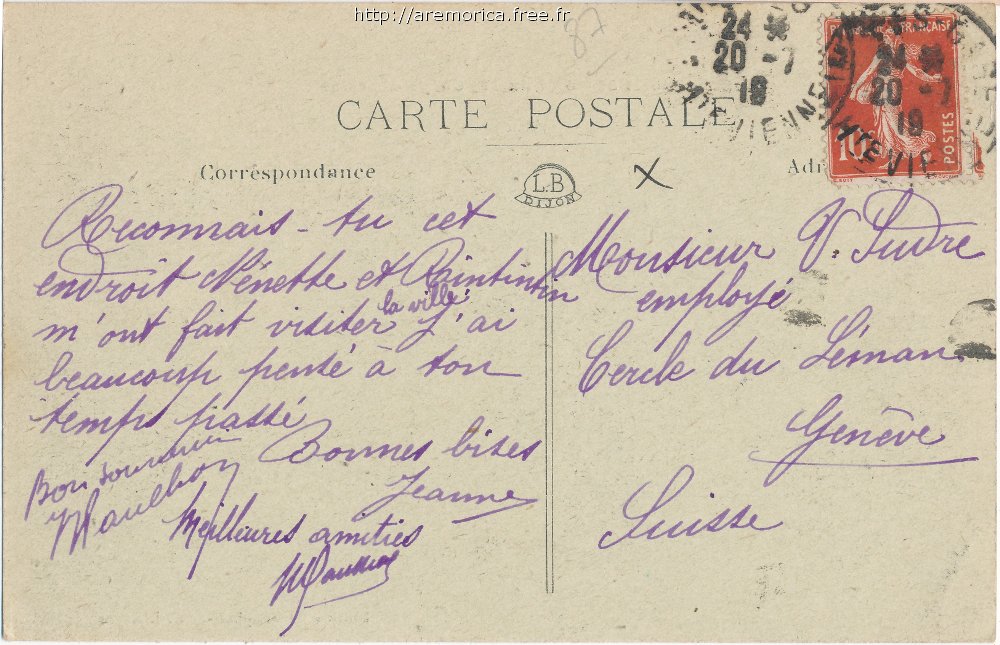 http://aremorica.free.fr
87
24 *
20 - 7
19
HTE VIENNE
24 *
20 - 7
19
HTE VIE
FRANÇAISE
POSTES
10
CARTE POSTALE
Correspondance
L.B
DIJON
Adr
Reconnais-tu cet
endroit Nénette et Rintintin
m'ont fait visiter la ville. J'ai
beaucoup pensé à ton
temps passé
Bonnes bises
Jeanne
Bon souvenir
Meilleures amitiés
Monsieur V. Pudre
employé
Cercle du Léman
Genève
Suisse